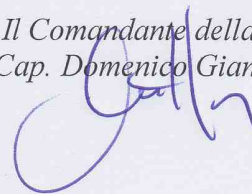 Il Comandante della
Cap. Domenico Gian